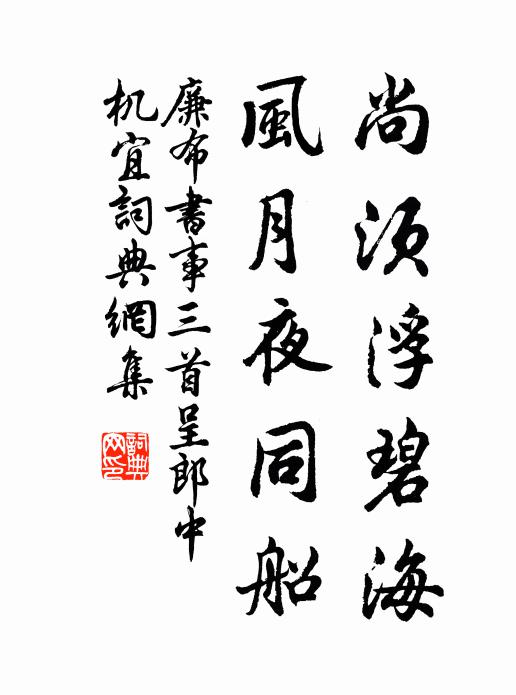 尚須浮碧海
風月夜同船
廉布書事三首呈郎中
机宜詞典網集
詞典网印